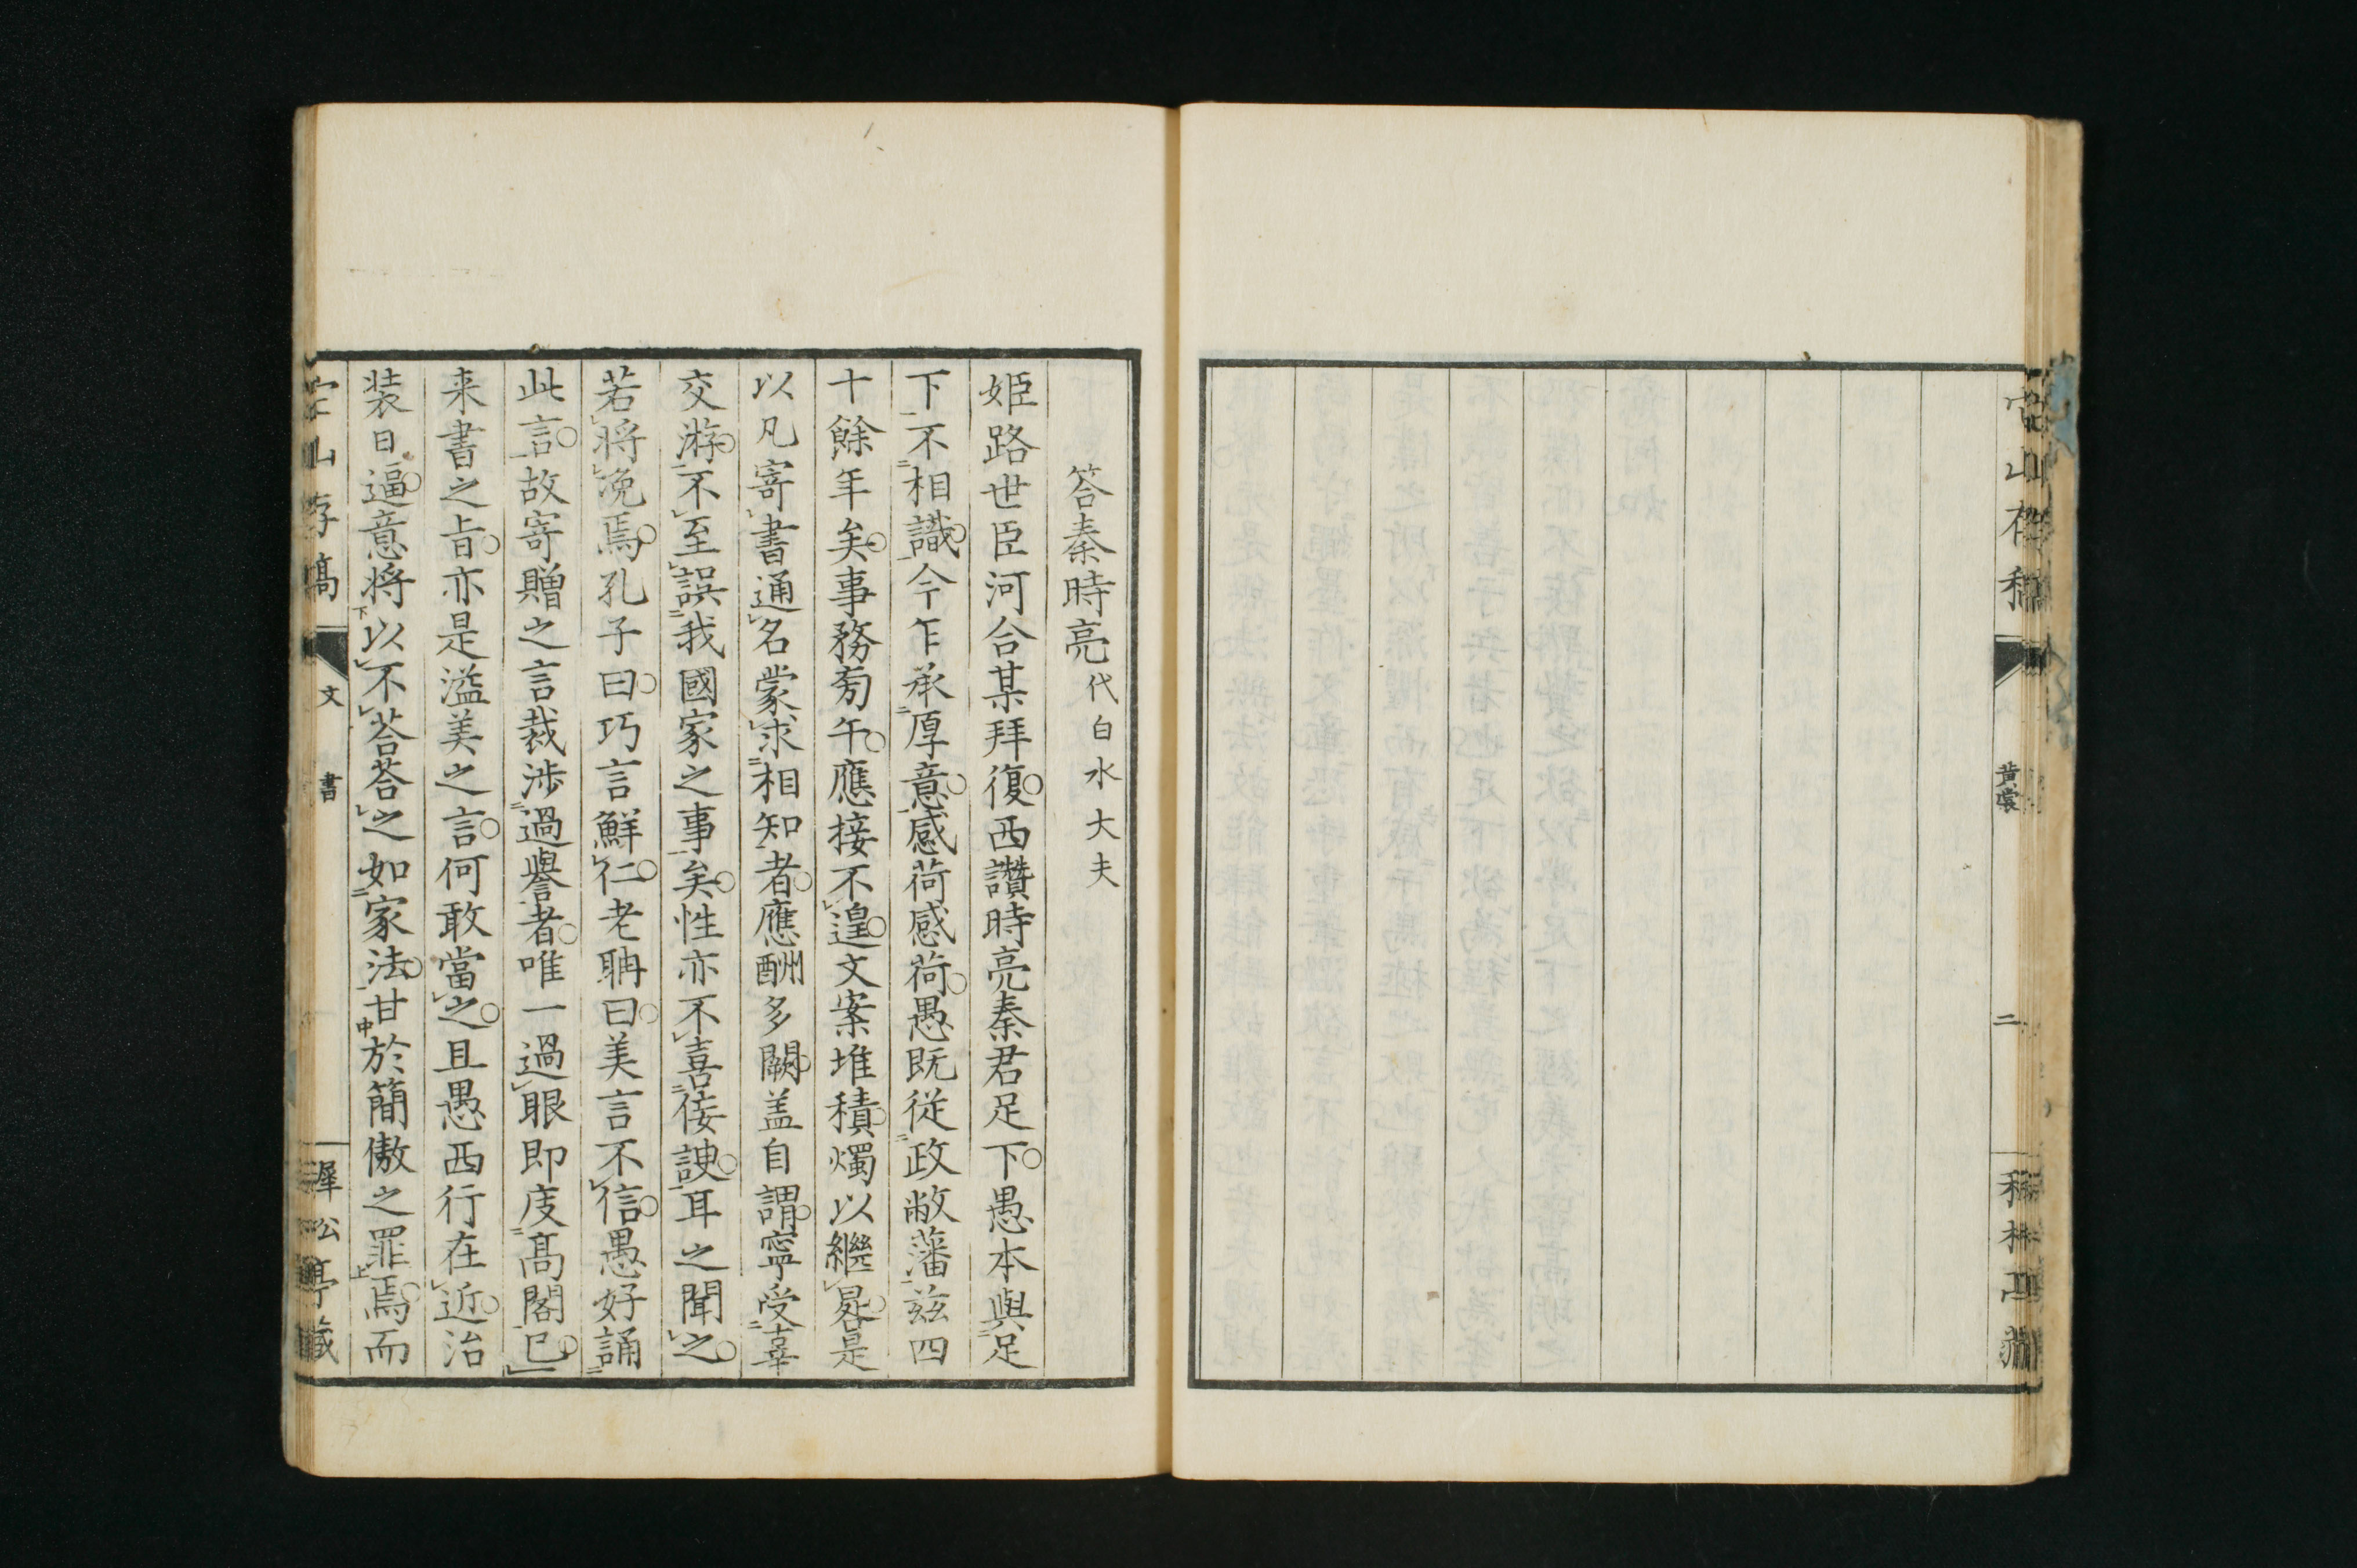 答秦時亮代白水大夫
姫路世臣河合某拜復西讚時亮秦君足下愚本與足
下不相識今乍承厚意感荷感荷愚既従政敝藩茲四
十餘年矣事務旁午應接不遑文案堆積燭以繼晷是
以凡寄書通名蒙求相知者應酬多闕盖自謂寧受辜
交游不至誤我國家之事矣性亦不喜佞諛耳之聞之
若将浼焉孔子曰巧言鮮仁老聃曰美言不信愚好誦
此言故寄贈之言裁渉過譽者唯一過眼即庋髙閣已
来書之㫖亦是溢美之言何敢當之且愚西行在近治
装日逼意将以不荅荅之如家法甘於簡傲之罪焉而
文
書
二